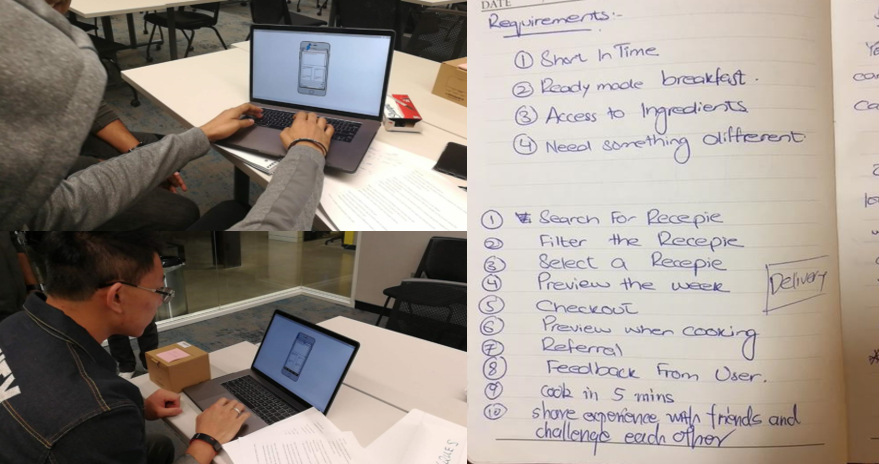 DATE
Requirements:-
① Short In Time
② Ready made breakfast.
③ Access to Ingredients
④ Need something different
① Search For Recepie
② Filter the Recepie
③ Select a Recepie
④ Preview the week
Delivery
⑤ Checkout
⑥ Preview when cooking
⑦ Referral
⑧ Feedback From User.
⑨ cook in 5 mins
⑩ share experience with friends and
challenge each other